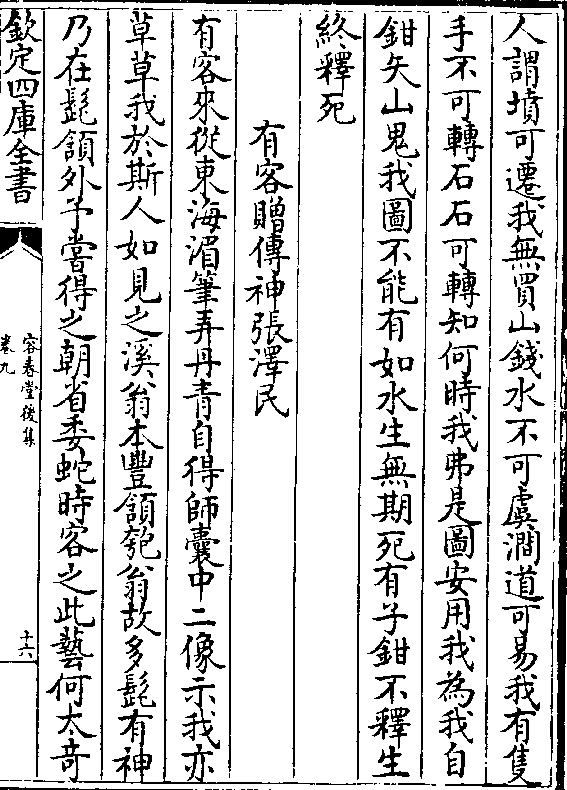 人謂墳可遷我無買山錢水不可虞澗道可易我有隻
手不可轉石石可轉知何時我弗是圖安用我為我自
鉗矢山鬼我圖不能有如水生無期死有子鉗不釋生
終釋死
有客贈傳神張澤民
有客來從東海湄筆弄丹青自得師囊中二像示我亦
草草我於斯人如見之溪翁本豐頷匏翁故多髭有神
乃在髭頷外予嘗得之朝省委蛇時客之此藝何太奇
欽定四庫全書
容春堂後集
卷九
十六